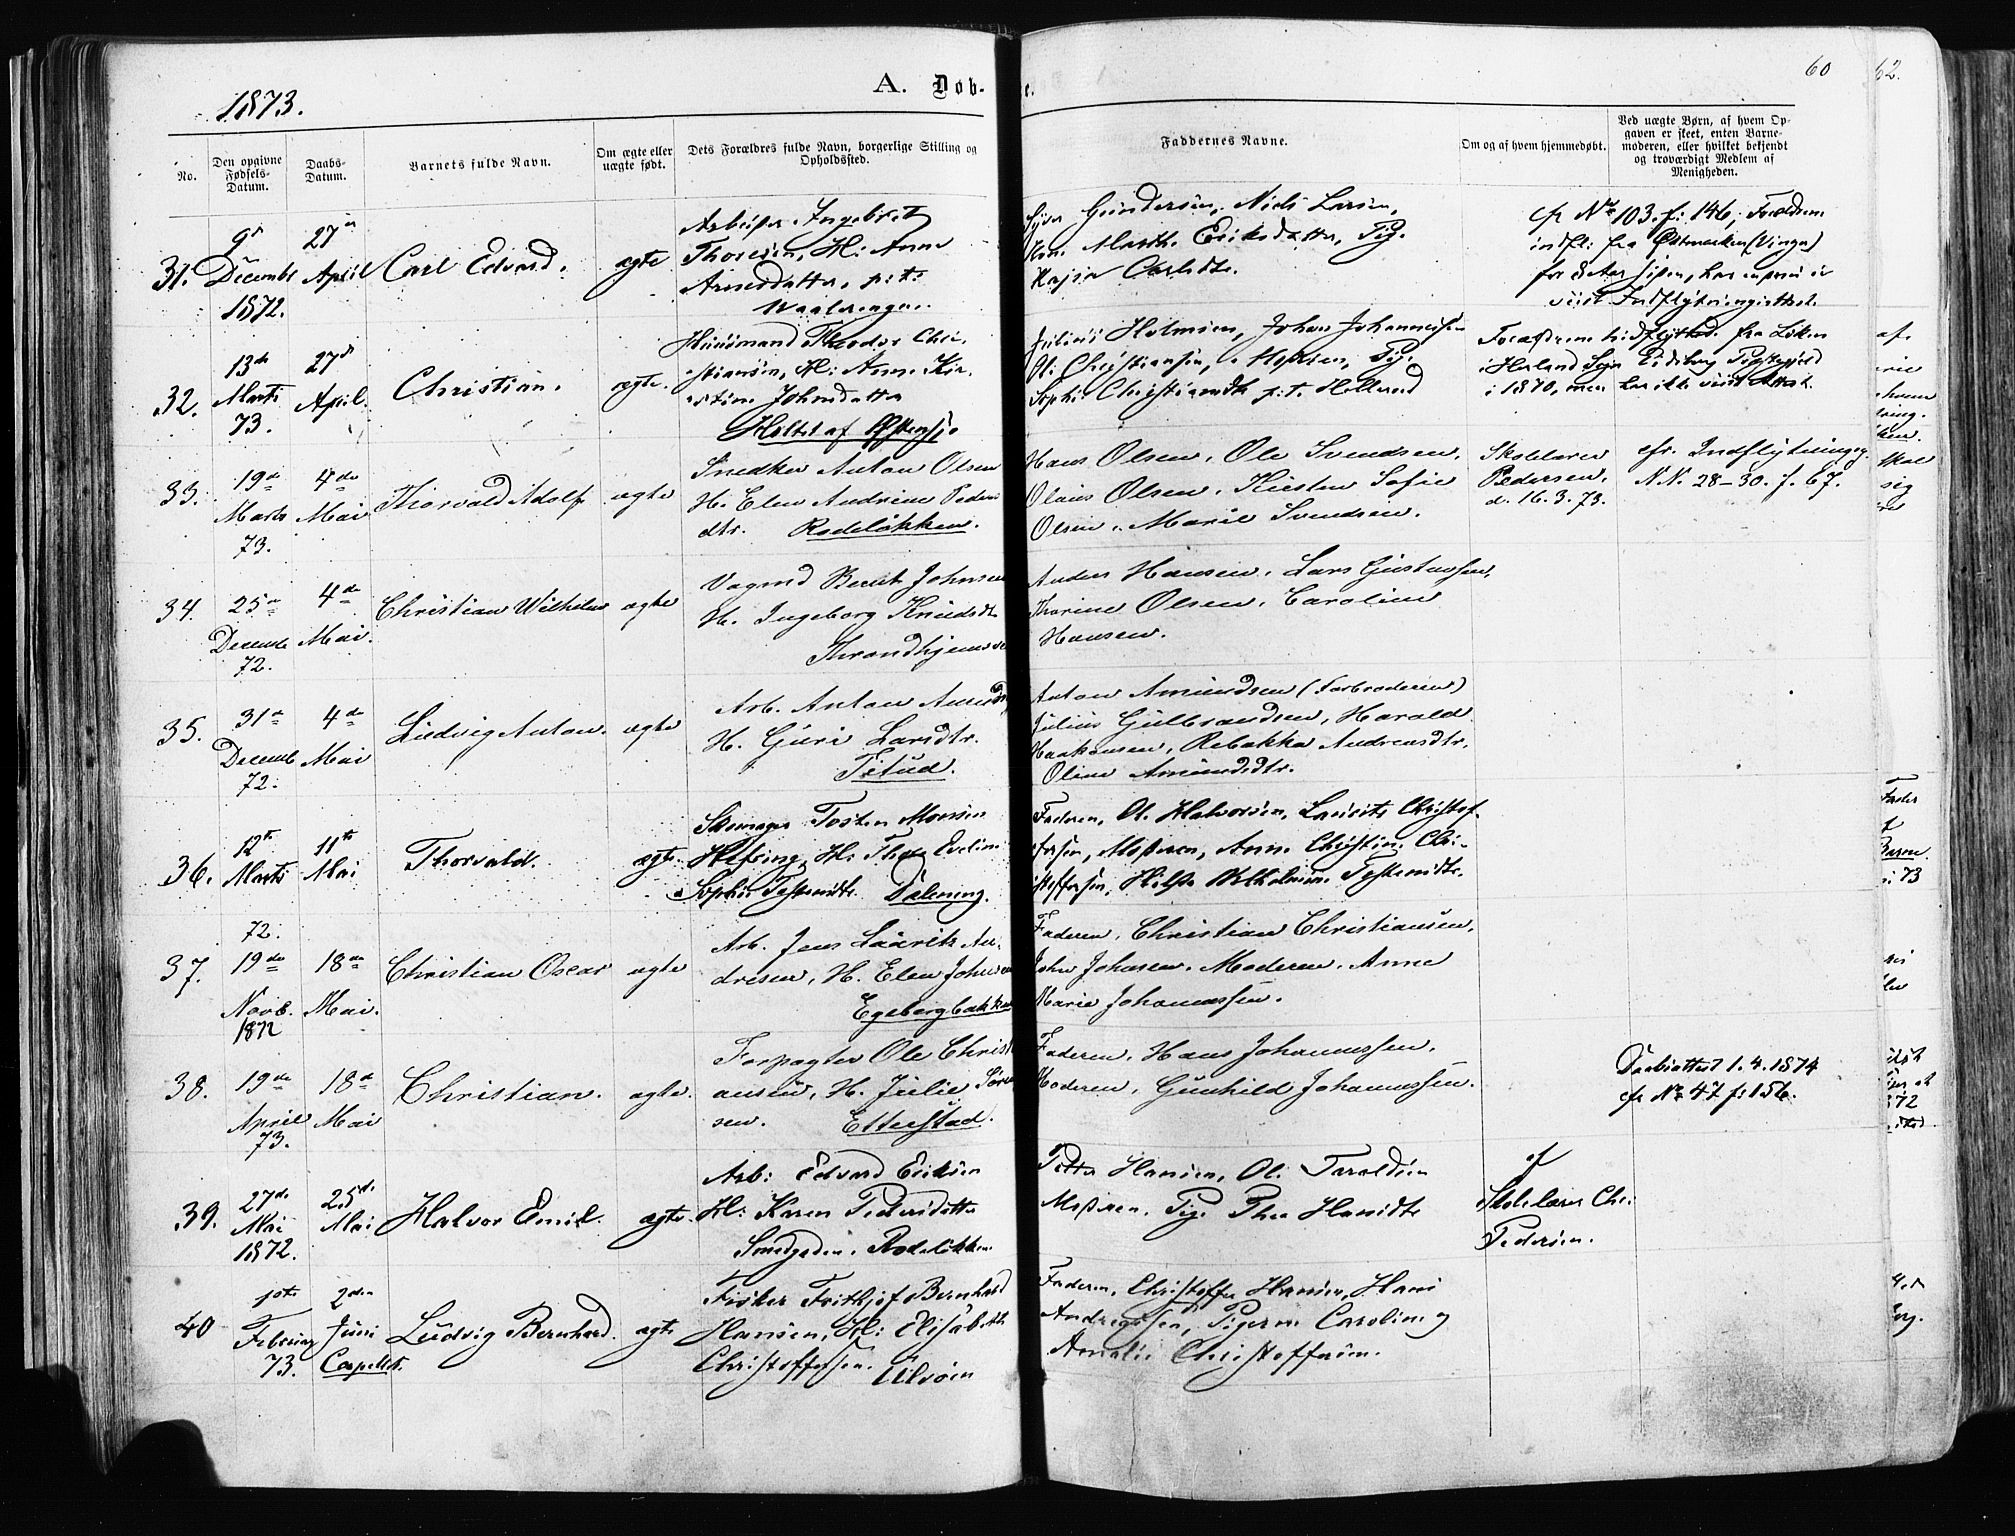 1873.
A. Døb-
e.
60
62.
No.
Den opgivne Fødsels-Datum.
Daabs-Datum.
Barnets fulde Navn.
Om ægte eller uægte født.
Dets Forældres fulde Navn, borgerlige Stilling og Opholdssted.
Faddernes Navne.
Om og af hvem hjemmedøbt.
Ved uægte Børn, af hvem Opgaven er skeet, enten Barnemoderen, eller hvilket bekjendt og troværdigt Medlem af Menigheden.
31.
9de
Decembr
1872.
27de
April
Carl Edvard.
ægte
Arbeider Ingebret
Thoresen, H: Anne
Arnesdatter, p:t:
Vaalerengen.
Gundersen, Niels Larsen,
Marth. Eriksdatter, Pig.
Kajsa Carlsdtr.
cfr No 103. f: 146, Forældrene
indfl: fra Østmarken (Vinger)
for 8 Aar siden, har
viist Indflytningsattest.
32.
13de
Marts
73.
27de
April.
Christian.
ægte.
Huusmand Theodor Chri-
stiansen, H: Anne Kir-
stine Johnsdatter
Holtet af Østensjø
Julius Holmsen, Johan Johannesen
Ol: Christiansen, Mosten, Pig.
Sophie Christiansdtr p.t. Hellerud
Forældrene hidflyttede fra Løken
i Herland Sogn Eidsberg Præstegjeld
i 1870, men har ikke viist Attest.
33.
19de
Marts
73.
4de
Mai
Thorvald Adolf
ægte
Snedker Anton Olsen
H. Elen Andrine Peders
dtr. Rodeløkken.
Hans Olsen, Ole Svendsen,
Olaus Olsen, Kirsten Sofie
Olsen, Marie Svendsen.
Skolelærer
Pedersen,
d. 16.3.73.
cfr. Indflytning
N.N. 28-30. f. 67.
34.
25de
Decemb
72.
4de
Mai.
Christian Wilhelm
ægte
Vognmd Berent Johnsen
H. Ingeborg Knudsdtr
Throndhjemsvei
Anders Hansen, Lars Gustavsen,
Karine Olsen, Caroline
Hansen.
35.
31te
Decemb
72.
4de
Mai
Ludvig Anton.
ægte
Arb. Anton Amunds
H. Guri Larsdtr.
Teisud.
Anton Amundsen (Farbroderen)
Julius Gulbrandsen, Harald
Haakonsen, Rebekka Andreasdtr,
Oline Amundsdtr.
36.
12te
Marts
11te
Mai
Thorvald.
ægte.
Skomager Tosten Monsen
Hilfring, H: Thea Eveline
Sophie Tostensdtr. Dælening.
Faderen, Ol. Halvorsen, Laurits Christof-
fersen, Moderen, Anne Christine Chri-
stoffersen, Helga Wilhelmine Tostensdtr.
37.
72.
19de
Novb.
1872
18de
Mai.
Christian Oscar
ægte
Arb. Jens Laurits An-
dresen, H. Elen Johnsen
Egebergbakken
Faderen, Christian Christiansen,
John Johnsen, Moderen, Anne
Marie Johannessen.
38.
19de
April
73.
18de
Mai
Christian.
ægte.
Forpagter Ole Christi
ansen, H. Julie Søren
sen. Etterstad.
Faderen, Hans Johannessen,
Moderen, Gunhild Johannessen.
Daabsattest 1.4.1874
cfr No 47 f: 156.
39.
27de
Mai
1872.
25de
Mai
Halvor Emil.
ægte.
Arb: Edvard Eriksen
H: Karen Pedersdatter
Smedgaden, Rodeløkken.
Petter Hansen, Ol. Taraldsen
Moderen, Pige Thea Hansdtr
af
Skolelærer Chr.
Pedersen.
40
1ste
Februar
73.
2den
Juni
Capellet.
Ludvig Bernhard.
ægte
Fisker Frithjof Bernhard
Hansen, H: Elisabeth
Christoffersen. Ulvøen
Faderen, Christoffer Hansen, Hans
Andreassen, Pigerne Caroline og
Amalie Christoffersen.